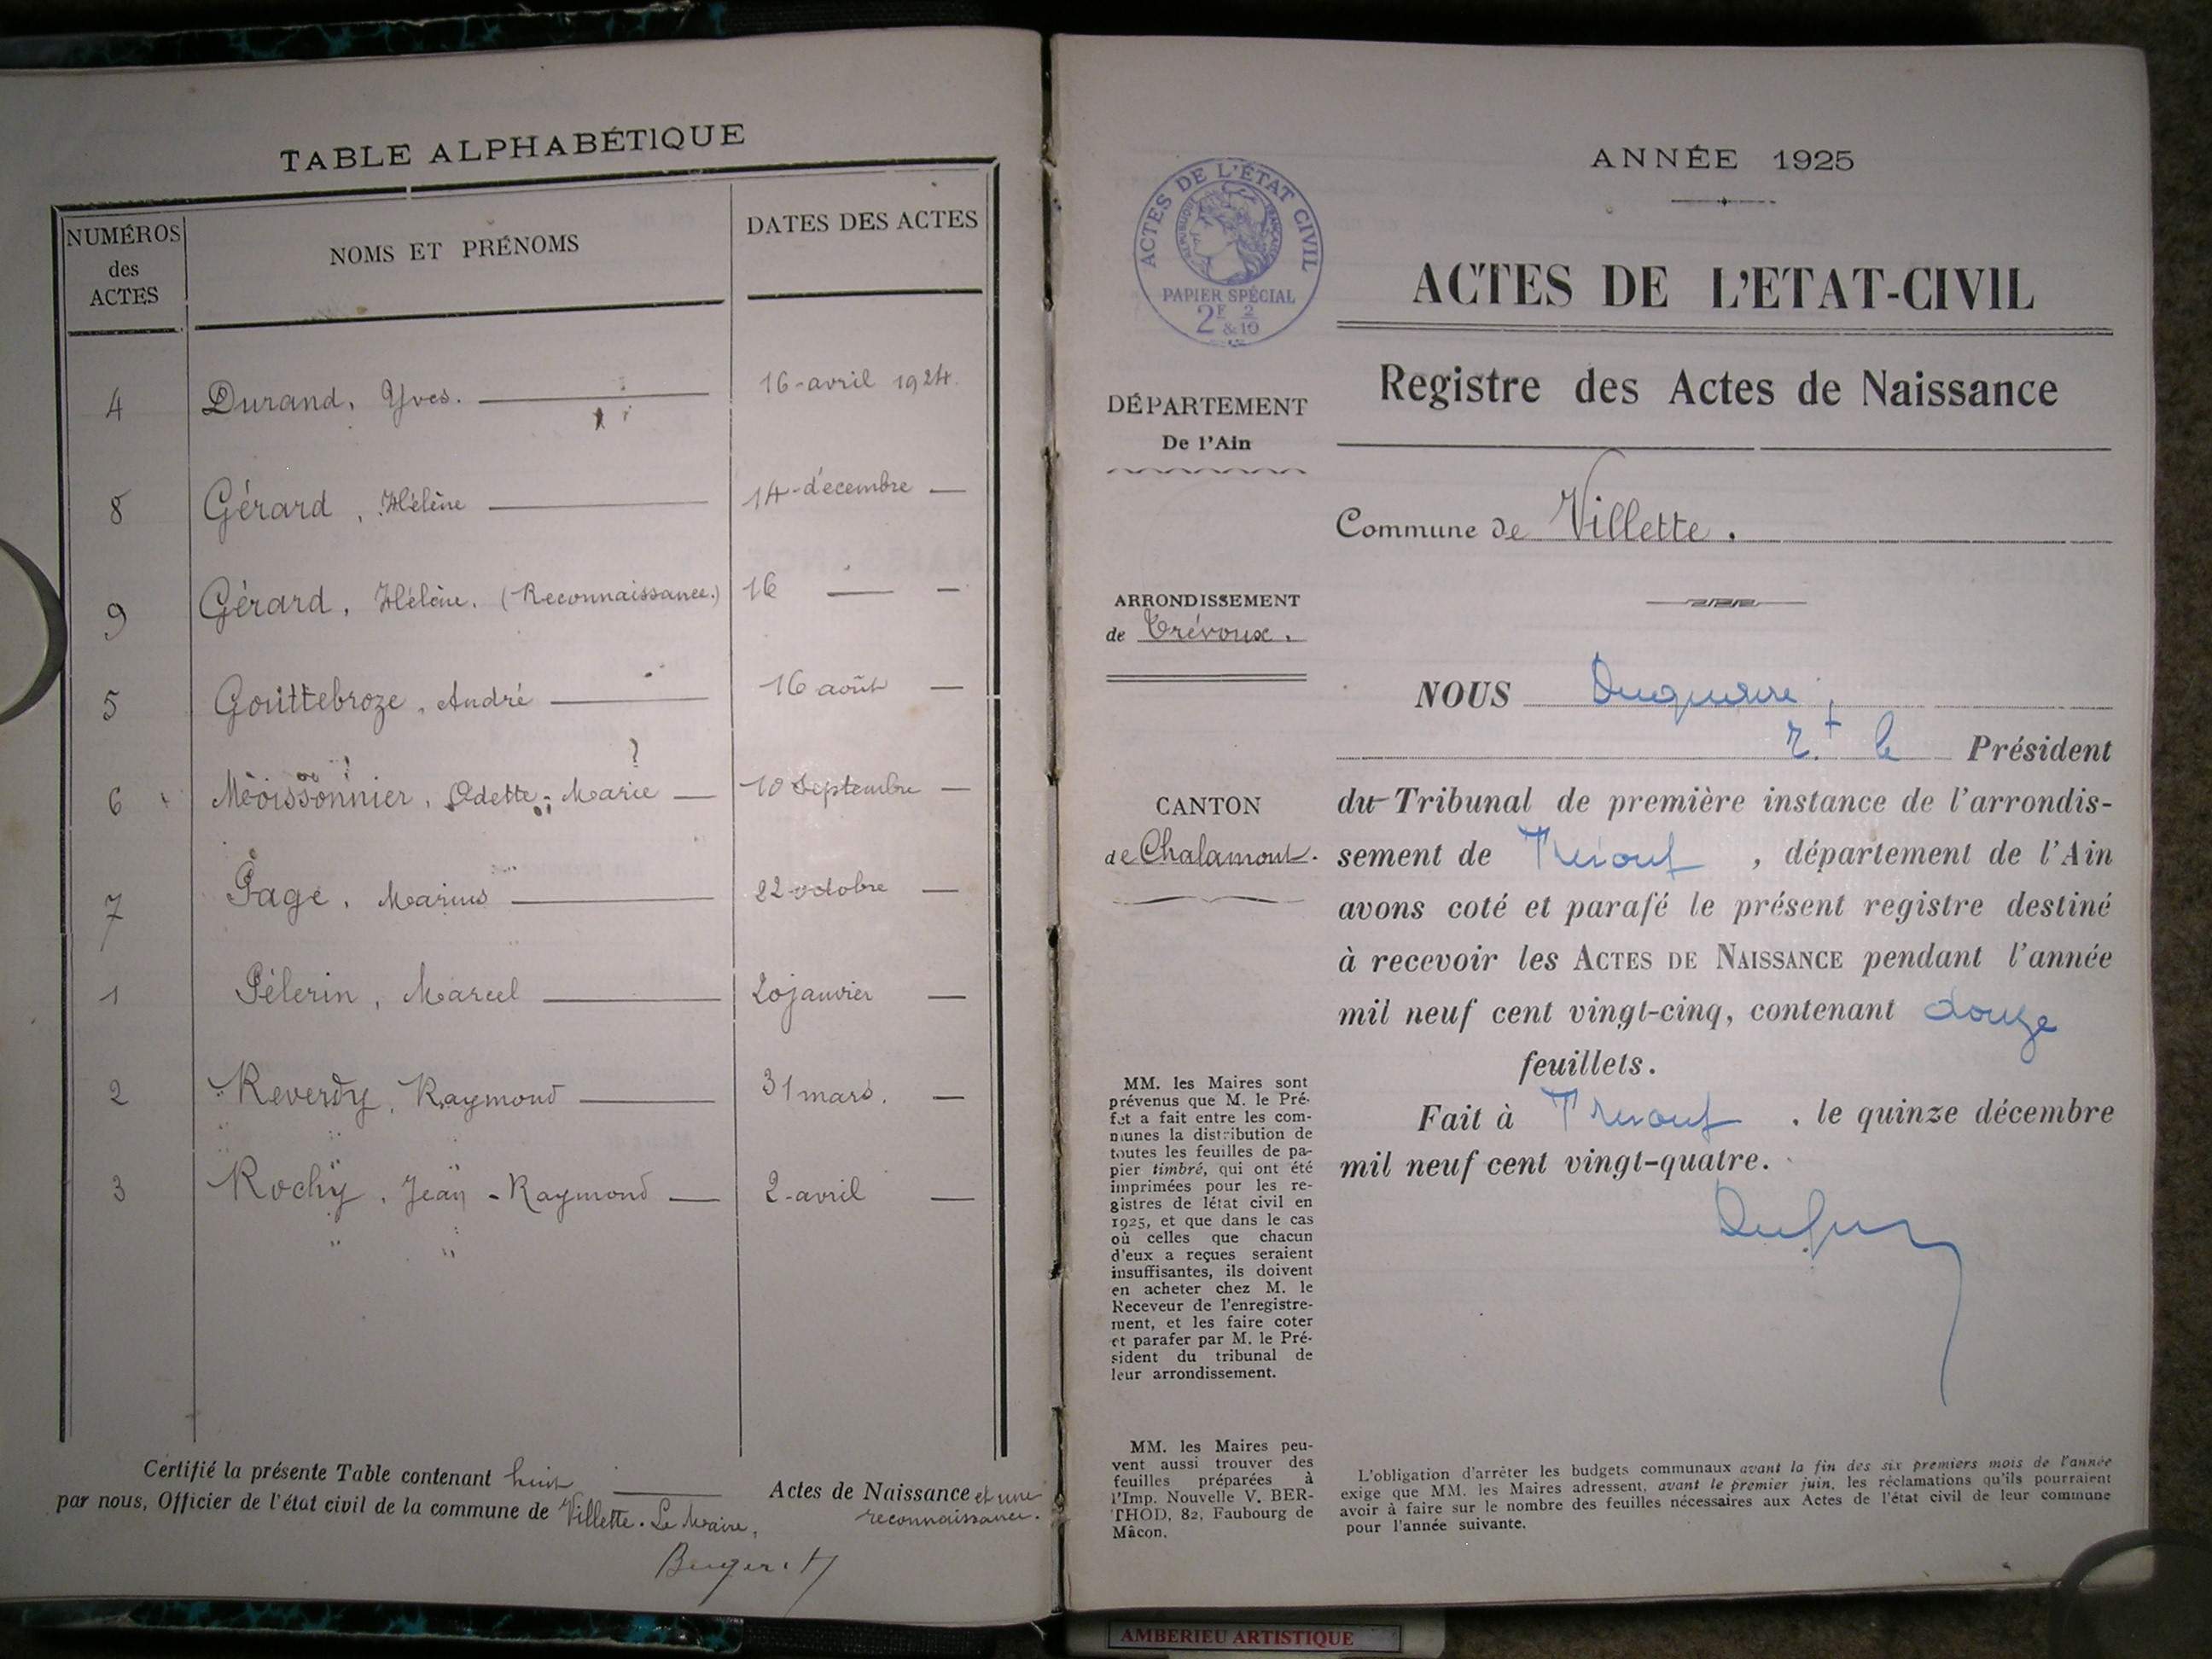 TABLE ALPHABÉTIQUE
NUMÉROS des ACTES NOMS ET PRÉNOMS DATES DES ACTES
4 Durand, Yves. 16 avril 1924.
8 Gérard, Hélène 14 décembre —
9 Gérard, Hélène. (Reconnaissance.) 16 — —
5 Gouttebroze, André 16 août —
6 Moissonnier, Odette-Marie 10 Septembre —
7 Page, Marius 22 octobre —
1 Pélerin, Marcel 20 janvier —
2 Reverdy, Raymond 31 mars. —
3 Rochy, Jean-Raymond 2 avril —
Certifié la présente Table contenant huit Actes de Naissance et une reconnaissance.
par nous, Officier de l'état civil de la commune de Villette. Le Maire,
ACTES DE L'ÉTAT CIVIL
RÉPUBLIQUE FRANÇAISE
PAPIER SPÉCIAL
2F 2/10
&
DÉPARTEMENT
De l'Ain
ARRONDISSEMENT
de Trévoux.
CANTON
de Chalamont.
MM. les Maires sont
prévenus que M. le Pré-
fet a fait entre les com-
munes la distribution de
toutes les feuilles de pa-
pier timbré, qui ont été
imprimées pour les re-
gistres de létat civil en
1925, et que dans le cas
où celles que chacun
d'eux a reçues seraient
insuffisantes, ils doivent
en acheter chez M. le
Receveur de l'enregistre-
ment, et les faire coter
et parafer par M. le Pré-
sident du tribunal de
leur arrondissement.
MM. les Maires peu-
vent aussi trouver des
feuilles préparées à
l'Imp. Nouvelle V. BER-
THOD, 82, Faubourg de
Mâcon.
ANNÉE 1925
ACTES DE L'ETAT-CIVIL
Registre des Actes de Naissance
Commune de Villette.
NOUS
le Président
du Tribunal de première instance de l'arrondis-
sement de Trévoux, département de l'Ain
avons coté et parafé le présent registre destiné
à recevoir les ACTES DE NAISSANCE pendant l'année
mil neuf cent vingt-cinq, contenant douze
feuillets.
Fait à Trévoux, le quinze décembre
mil neuf cent vingt-quatre.
L'obligation d'arrêter les budgets communaux avant la fin des six premiers mois de l'année
exige que MM. les Maires adressent, avant le premier juin, les réclamations qu'ils pourraient
avoir à faire sur le nombre des feuilles nécessaires aux Actes de l'état civil de leur commune
pour l'année suivante.
AMBERIEU ARTISTIQUE